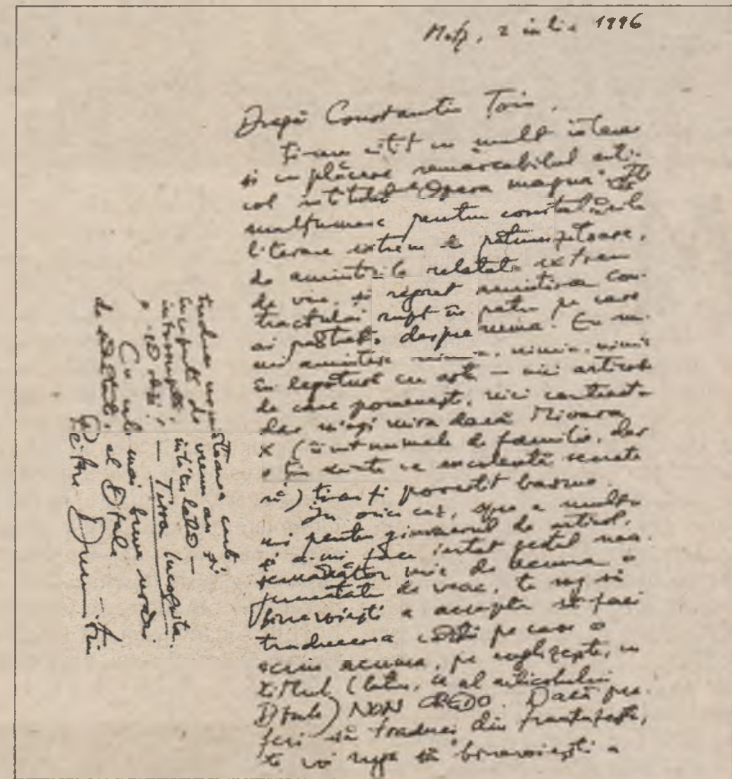 Metz, 2 iulie 1996
Dragă Constantin Toiu,
Ți-am citit cu mult interes
și cu plăcere remarcabilul arti-
col intitulat "Opera magna". Îți
mulțumesc pentru constatările
literare extrem de pătrunzătoare,
de amintirile relatate extrem
de viu, și regret amintirea con-
tractului rupt în patru pe care
ai păstrat-o despre mine. Eu nu-
mi amintesc nimic, nimic, nimic
în legătură cu asta – nici articol
de care pomenești, nici contract
dar m-aș mira dacă Mioara
x (i-am uitat numele de familie, dar
o țin minte ca excelentă secreta-
ră) ți-ar fi povestit basme.
În orice caz, spre a mulțu-
mi pentru giuvaerul de articol,
și a-mi face iertat gestul nea-
semănător mie de acuma o
jumătate de veac, te rog să
binevoiești a accepta să faci
traducerea cărții pe care o
scriu acuma, pe englezește, cu
titlul (latin, ca al articolului
Dtale) NON CREDO. Dacă pre-
feri să traduci din franțuzește,
te voi ruga să binevoiești a
traduce
începută de vreun an și
întreruptă, intitulată –
– Terra incognita.
Cu cele mai bune urări
de sănătate, al Dtale
Petru Dumitriu